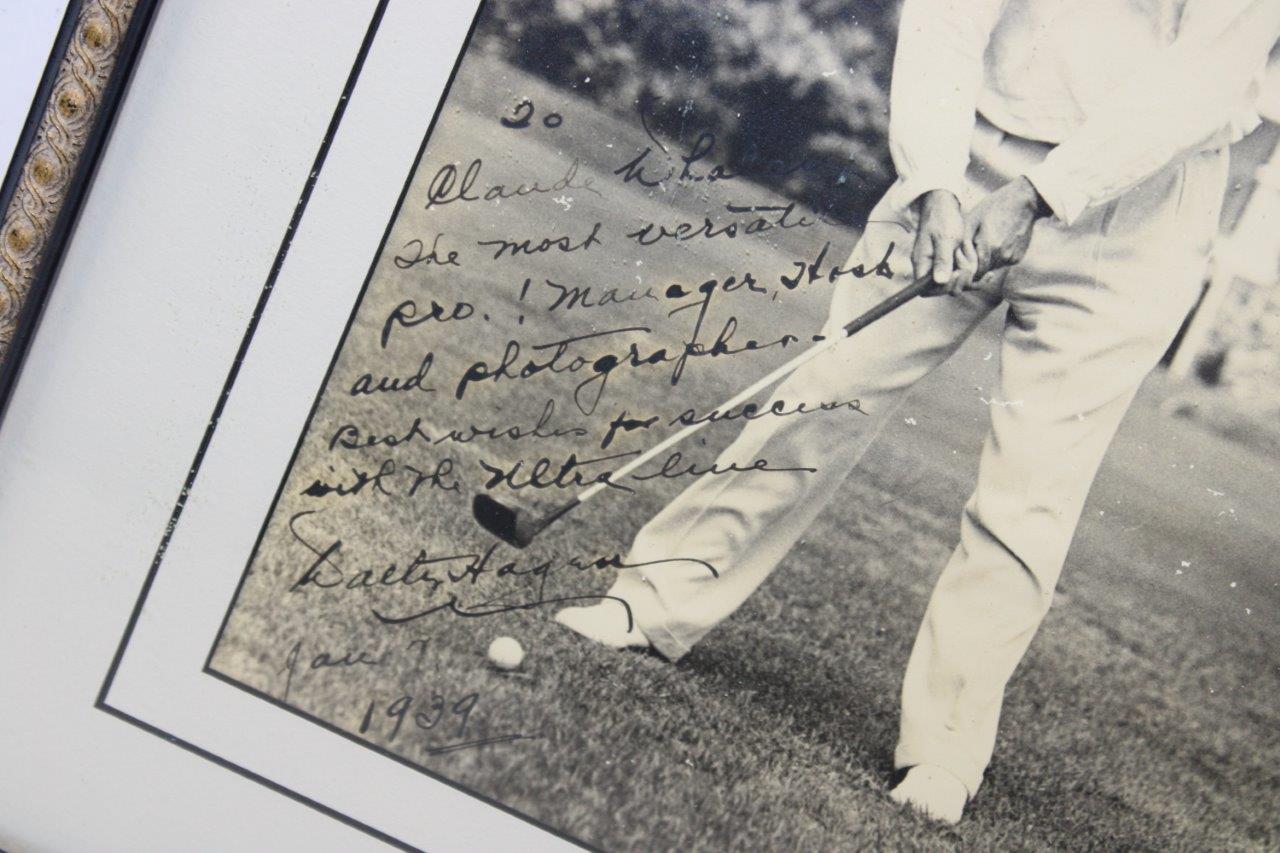 To
Claude
The most versatile
pro.! Manager, Host
and photographer -
Best wishes for success
with the Ultra line
Walter Hagen
Jan 7
1939